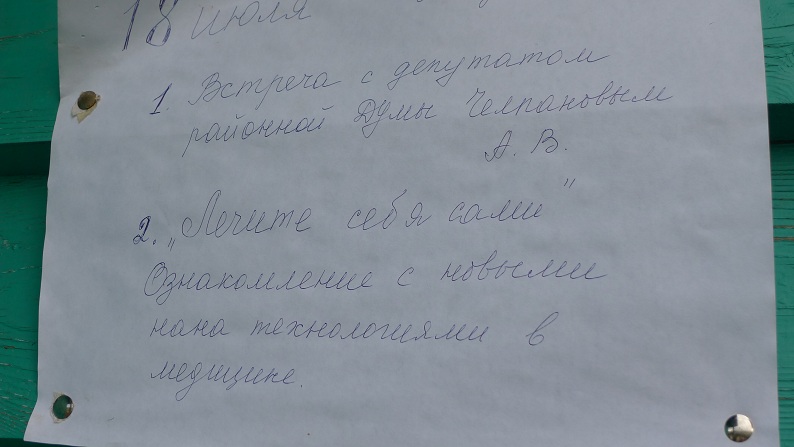 18 июля
1. Встреча с депутатом
районной Думы Челпановым
А. В.
2. „Лечите себя сами"
Ознакомление с новыми
нана технологиями в
медицине.